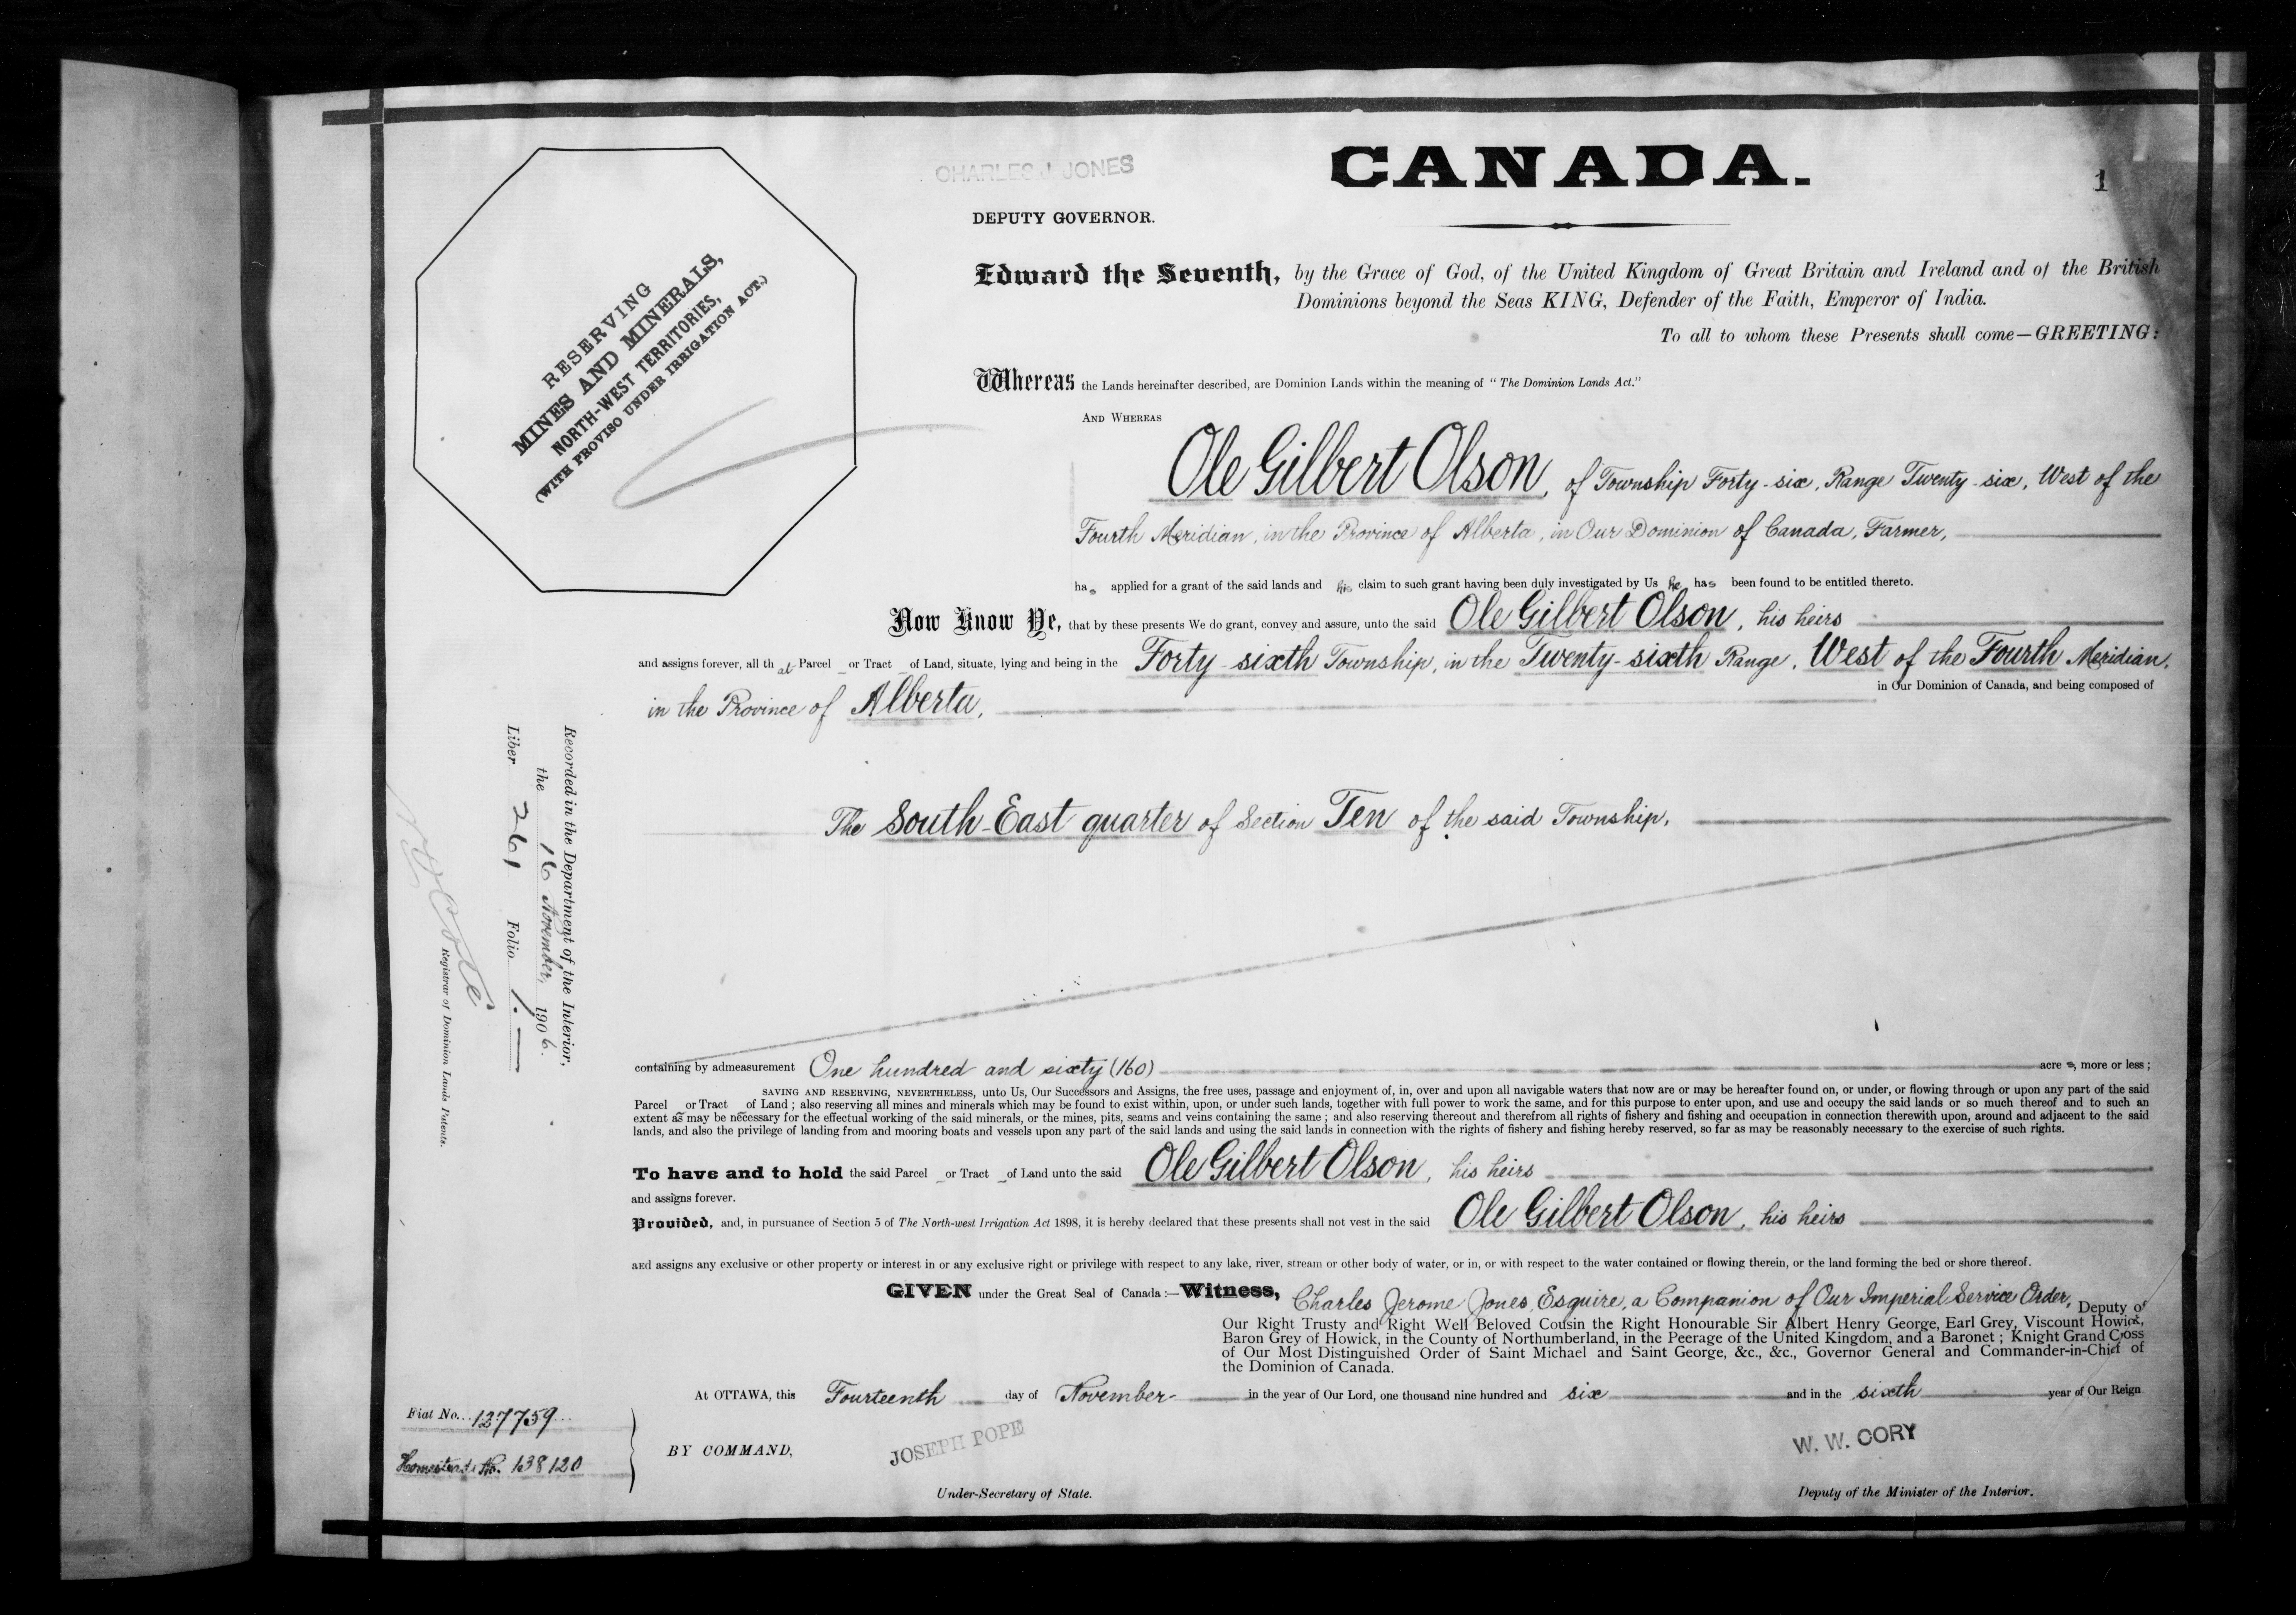 CHARLES J JONES
CANADA.
1
DEPUTY GOVERNOR.
RESERVING
MINES AND MINERALS,
NORTH-WEST TERRITORIES,
(WITH PROVISO UNDER IRRIGATION ACT.)
Edward the Seventh, by the Grace of God, of the United Kingdom of Great Britain and Ireland and of the British
Dominions beyond the Seas KING, Defender of the Faith, Emperor of India.
To all to whom these Presents shall come—GREETING:
Whereas the Lands hereinafter described, are Dominion Lands within the meaning of "The Dominion Lands Act."
AND WHEREAS
Ole Gilbert Olson, of Township Forty-six, Range Twenty-six, West of the
Fourth Meridian, in the Province of Alberta, in Our Dominion of Canada, Farmer,
has applied for a grant of the said lands and his claim to such grant having been duly investigated by Us he has been found to be entitled thereto.
Now Know Ye, that by these presents We do grant, convey and assure, unto the said Ole Gilbert Olson, his heirs
and assigns forever, all that Parcel or Tract of Land, situate, lying and being in the Forty-sixth Township, in the Twenty-sixth Range, West of the Fourth Meridian,
in the Province of Alberta, in Our Dominion of Canada, and being composed of
The South-East quarter of Section Ten of the said Township,
containing by admeasurement One hundred and sixty (160) acres, more or less;
SAVING AND RESERVING, NEVERTHELESS, unto Us, Our Successors and Assigns, the free uses, passage and enjoyment of, in, over and upon all navigable waters that now are or may be hereafter found on, or under, or flowing through or upon any part of the said
Parcel or Tract of Land; also reserving all mines and minerals which may be found to exist within, upon, or under such lands, together with full power to work the same, and for this purpose to enter upon, and use and occupy the said lands or so much thereof and to such an
extent as may be necessary for the effectual working of the said minerals, or the mines, pits, seams and veins containing the same; and also reserving thereout and therefrom all rights of fishery and fishing and occupation in connection therewith upon, around and adjacent to the said
lands, and also the privilege of landing from and mooring boats and vessels upon any part of the said lands and using the said lands in connection with the rights of fishery and fishing hereby reserved, so far as may be reasonably necessary to the exercise of such rights.
To have and to hold the said Parcel or Tract of Land unto the said Ole Gilbert Olson, his heirs
and assigns forever.
Provided, and, in pursuance of Section 5 of The North-west Irrigation Act 1898, it is hereby declared that these presents shall not vest in the said Ole Gilbert Olson, his heirs
and assigns any exclusive or other property or interest in or any exclusive right or privilege with respect to any lake, river, stream or other body of water, or in, or with respect to the water contained or flowing therein, or the land forming the bed or shore thereof.
GIVEN under the Great Seal of Canada:—Witness, Charles Jerome Jones, Esquire, a Companion of Our Imperial Service Order, Deputy of
Our Right Trusty and Right Well Beloved Cousin the Right Honourable Sir Albert Henry George, Earl Grey, Viscount Howick,
Baron Grey of Howick, in the County of Northumberland, in the Peerage of the United Kingdom, and a Baronet; Knight Grand Cross
of Our Most Distinguished Order of Saint Michael and Saint George, &c., &c., Governor General and Commander-in-Chief of
the Dominion of Canada.
At OTTAWA, this Fourteenth day of November in the year of Our Lord, one thousand nine hundred and six and in the sixth year of Our Reign
BY COMMAND,
JOSEPH POPE
Under-Secretary of State.
W. W. CORY
Deputy of the Minister of the Interior.
Fiat No. 127759
Homestead No. 138120
Recorded in the Department of the Interior,
the 16 November, 1906.
Liber 261 Folio 1.
Registrar of Dominion Lands Patents.